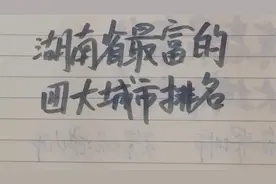 湖南省最富的
四大城市排名